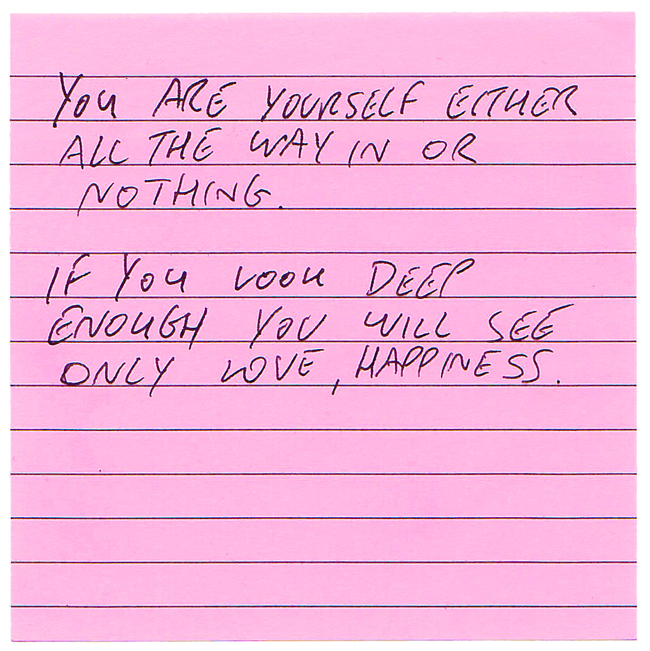 YOU ARE YOURSELF EITHER
ALL THE WAY IN OR
NOTHING.
IF YOU LOOK DEEP
ENOUGH YOU WILL SEE
ONLY LOVE, HAPPINESS.